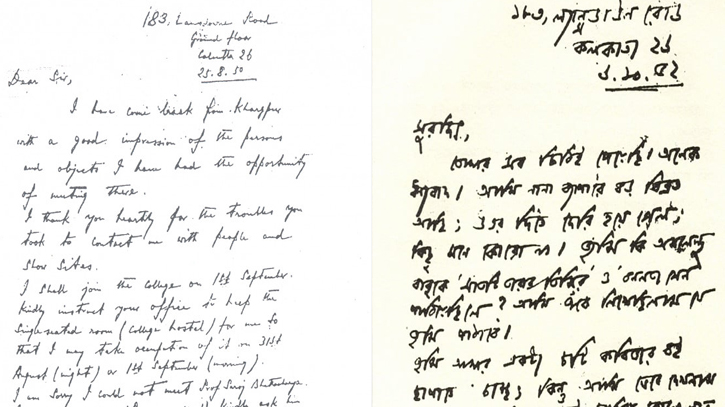 183, Lansdowne Road
Ground floor
Calcutta 26
25.8.50
Dear Sir,
I have come back from Kharagpur
with a good impression of the persons
and objects I have had the opportunity
of meeting there.
I thank you heartily for the troubles you
took to contact me with people and
show sites.
I shall join the College on 1st September.
Kindly instruct your office to keep the
Single seated room (College hostel) for me so
that I may take occupation of it on 31st
August (night) or 1st September (morning).
I am sorry I could not meet Prof Saroj
kindly ask him
১৮৩, ল্যান্সডাউন রোড
কলকাতা ২৬
৬.১০.৫২
সুরজিৎ,
তোমার সব চিঠিই পেয়েছি। অনেক
ধন্যবাদ। আমি নানা ব্যাপারে বড় বিব্রত
আছি; উত্তর দিতে দেরি হয়ে গেল;
কিছু মনে কোরো না। তুমি কি
পাঠিয়েছিলে? আমি তাঁকে লিখেছিলাম যে
তুমি পাঠাবে।
তুমি আমার একটা কবিতার বই
ছাপাতে চাচ্ছ; কিন্তু আমি ভেবে দেখলাম